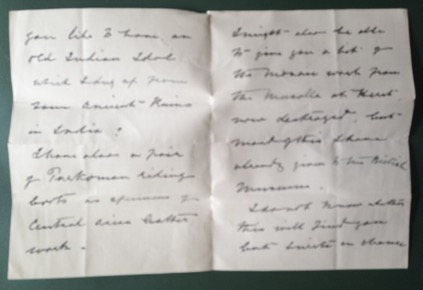 you like to have an
old Indian Idol
which I dug up from
some ancient Ruins
in India?
I have also a pair
of Turkoman riding
boots as specimens of
Central Asian leather
work.
I might also be able
to give you a bit of
the Mosaic work from
the Musalla at Herat
now destroyed, but
most of this I have
already given to the British
Museum.
I do not know whether
this will find you
but I write on chance